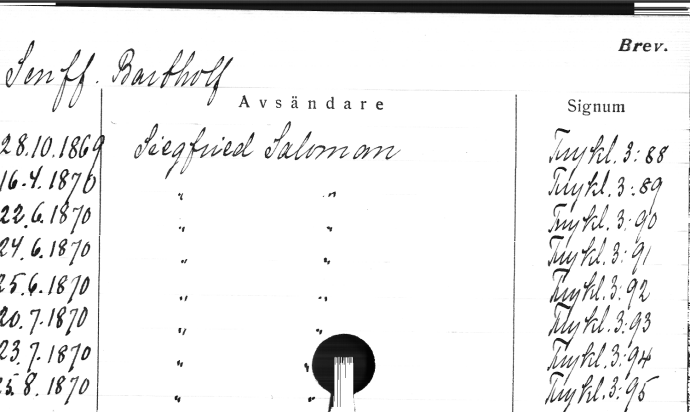 Brev.
Senff. Barthold
Avsändare Signum
28.10.1869 Siegfried Saloman Trykl. 3:88
16.4.1870 " " Trykl. 3:89
22.6.1870 " " Trykl. 3:90
24.6.1870 " " Trykl. 3:91
25.6.1870 " " Trykl. 3:92
20.7.1870 " " Trykl. 3:93
23.7.1870 " " Trykl. 3:94
25.8.1870 " " Trykl. 3:95